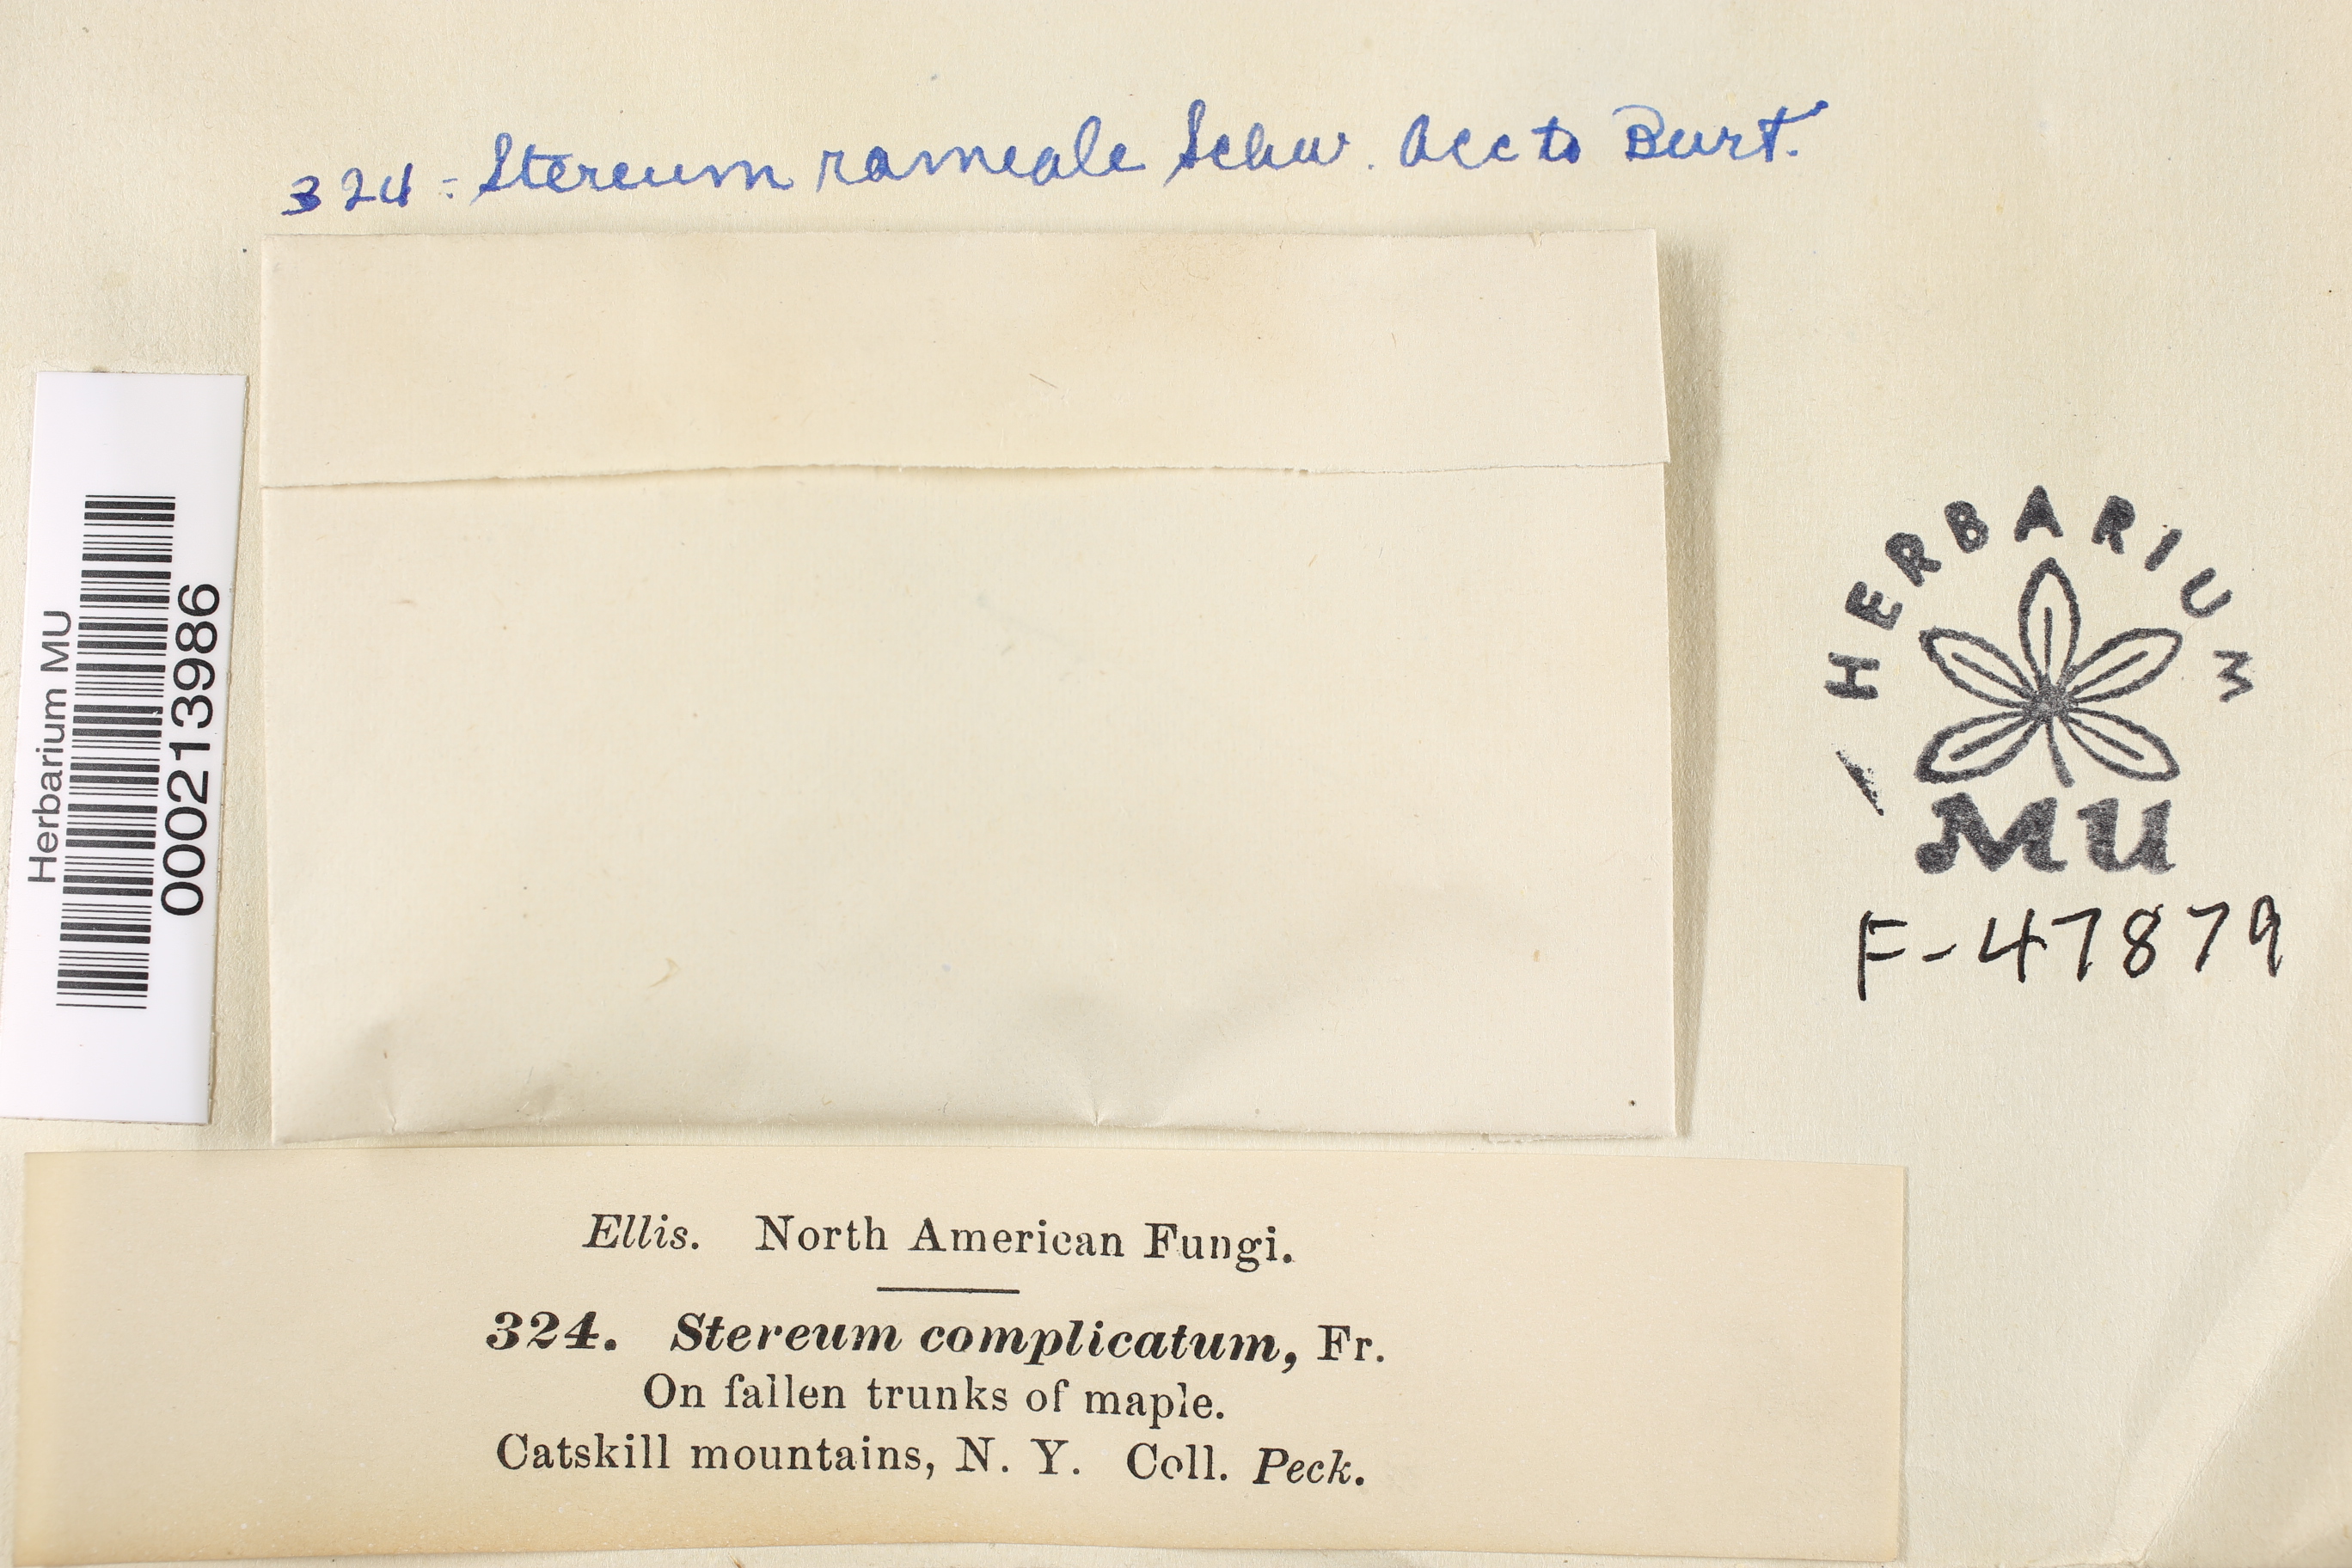 324 = Stereum rameale Schw. Acc to Burt.
Herbarium MU
000213986
HERBARIUM
MU
F-47879
Ellis. North American Fungi.
324. Stereum complicatum, Fr.
On fallen trunks of maple.
Catskill mountains, N. Y. Coll. Peck.